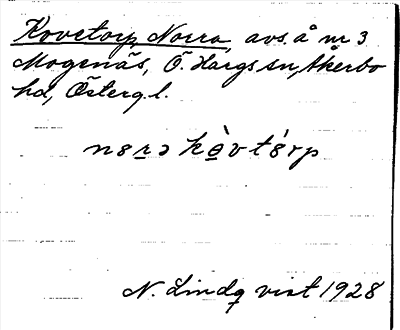 Kovetorp, Norra, avs. å nr 3
Mogenäs, Ö. Hargs sn, Åkerbo
hd, Österg. l.
nɷrə kòvtórp
N. Lindqvist 1928